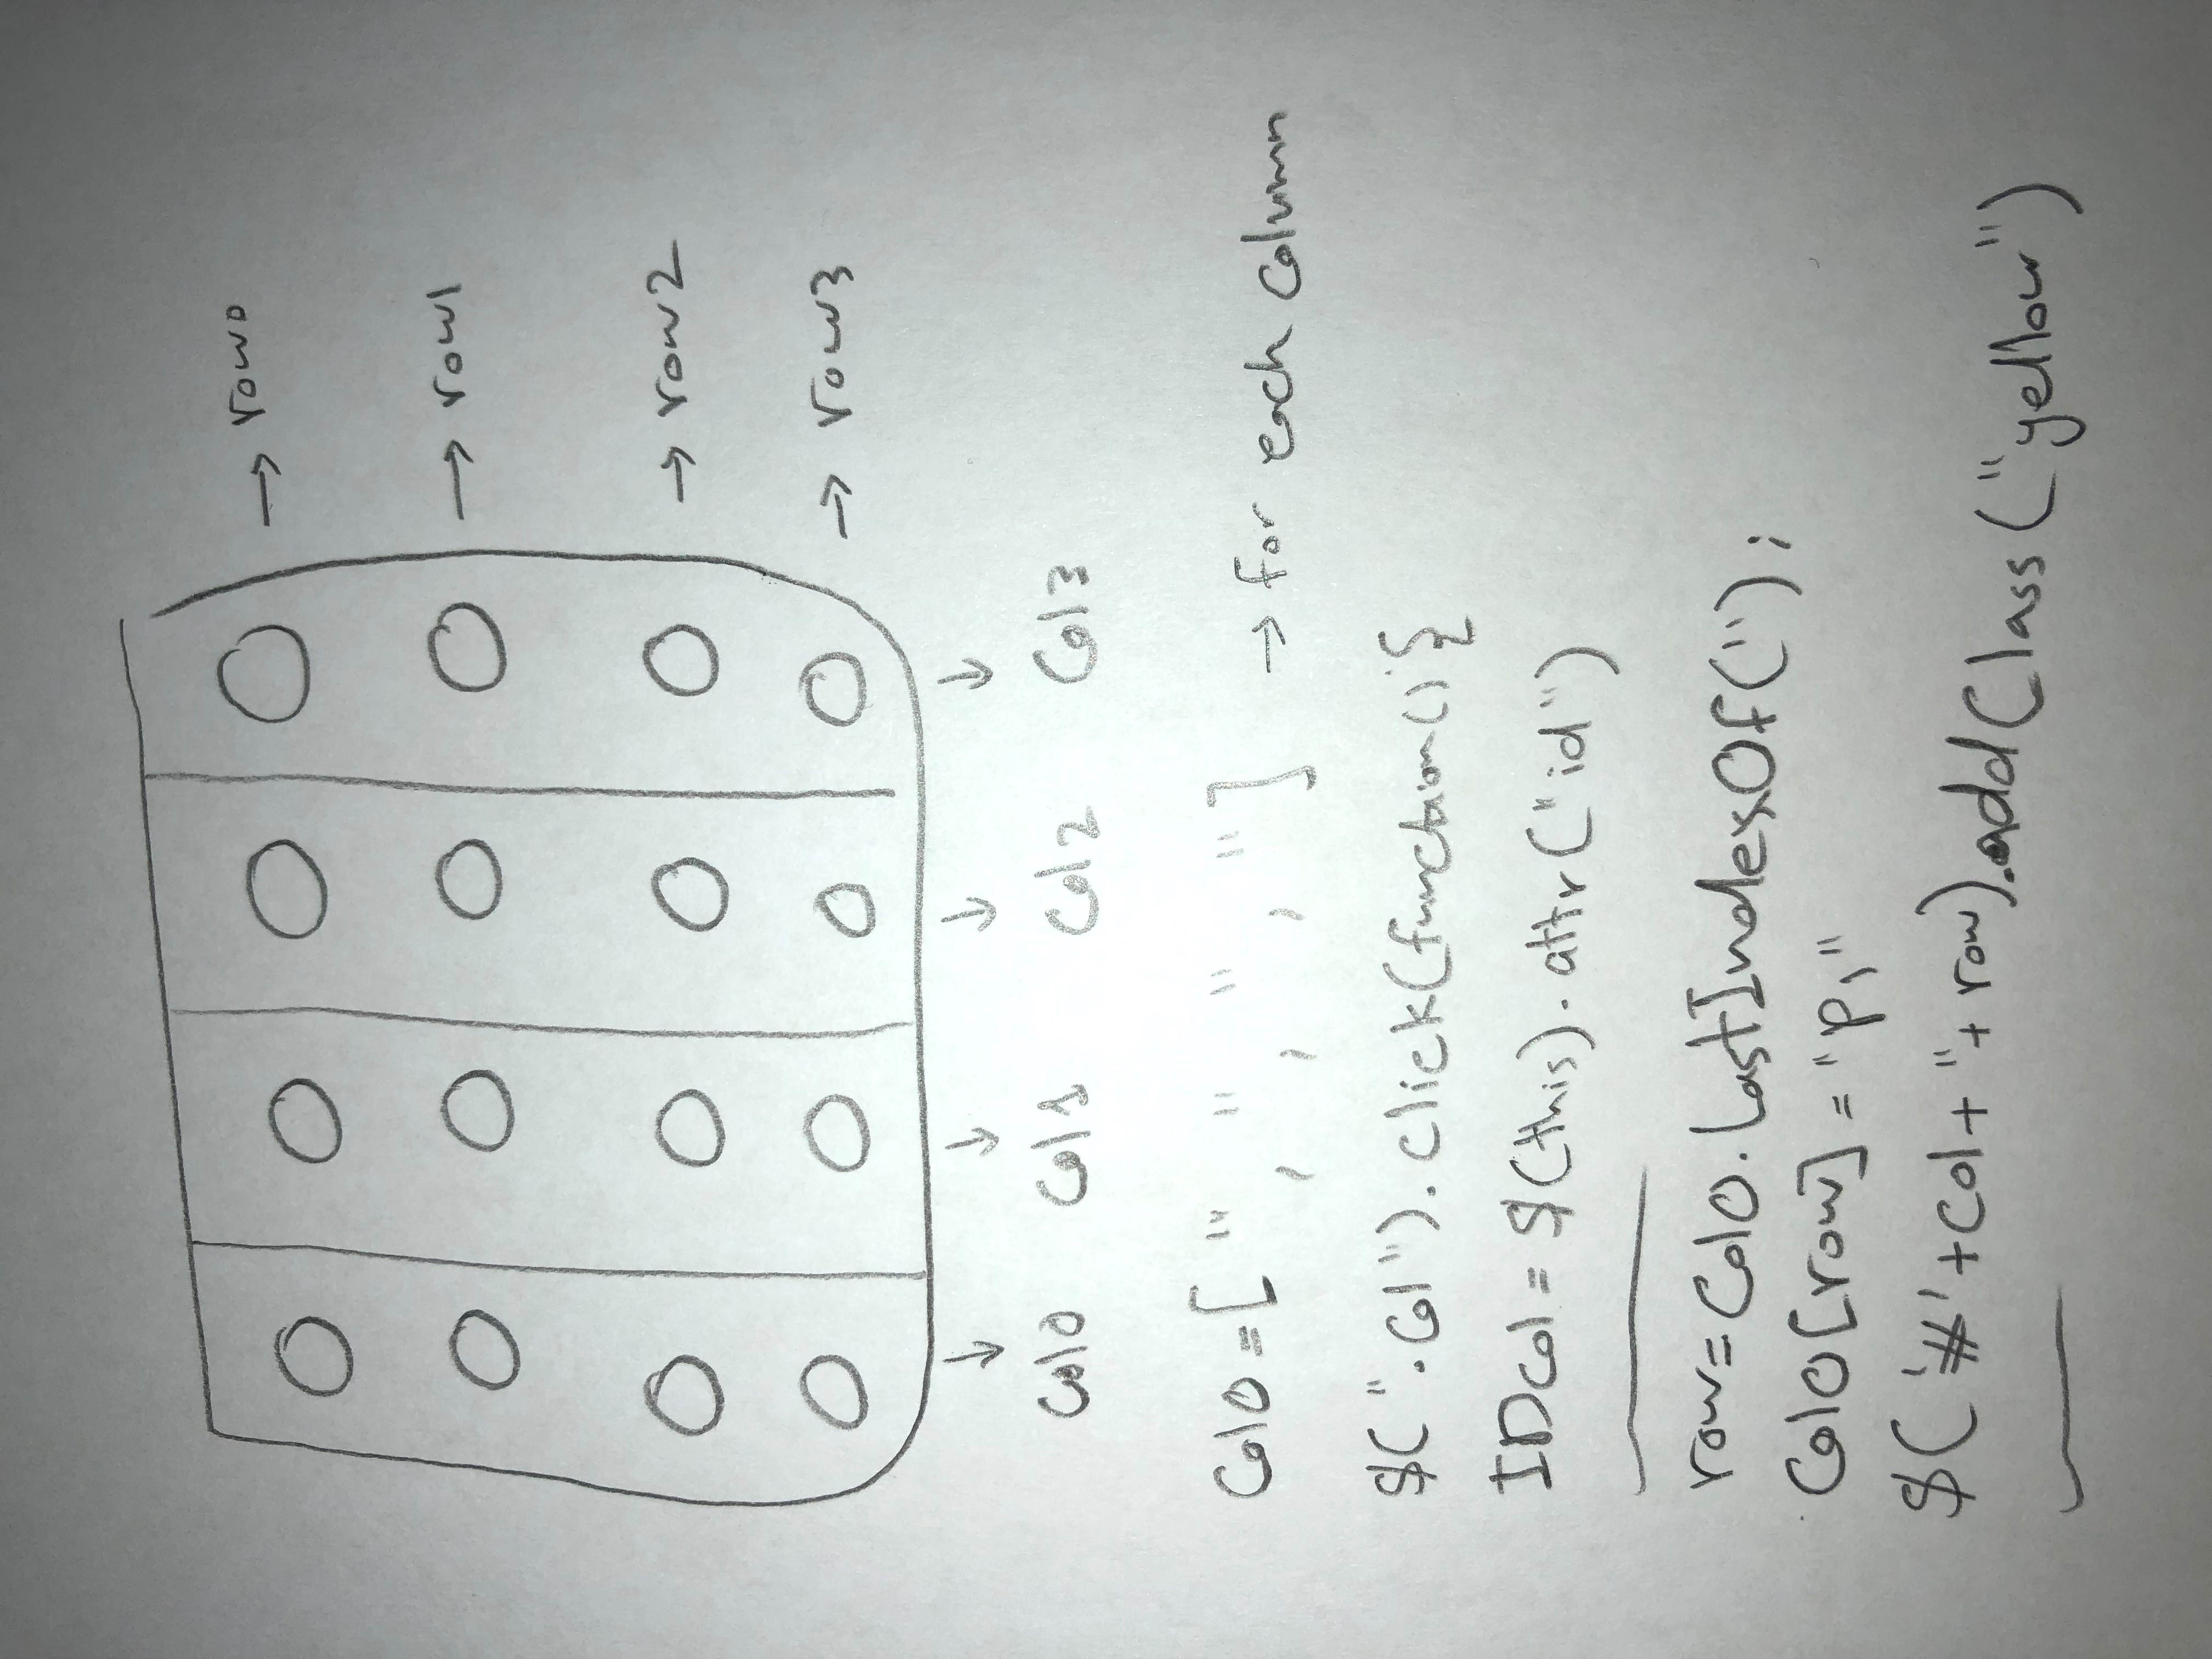 → row0
→ row1
→ row2
→ row3
↓ ↓ ↓ ↓
Col0 Col1 Col2 Col3
Col0=[ '' , '' , '' , '' ] → for each column
$(".Col").click(function(){
IDcol = $(this).attr("id")
row=Col0.lastIndexOf('');
Col0[row] = "p1"
$('#'+Col+''+row).addClass("yellow")